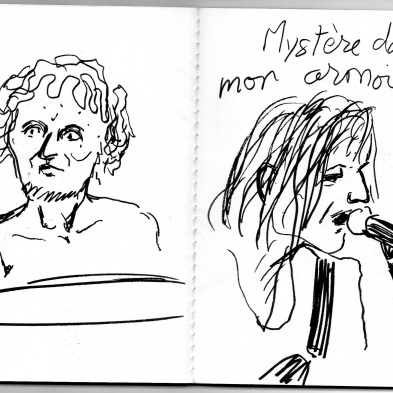 Mystère da
mon armoi